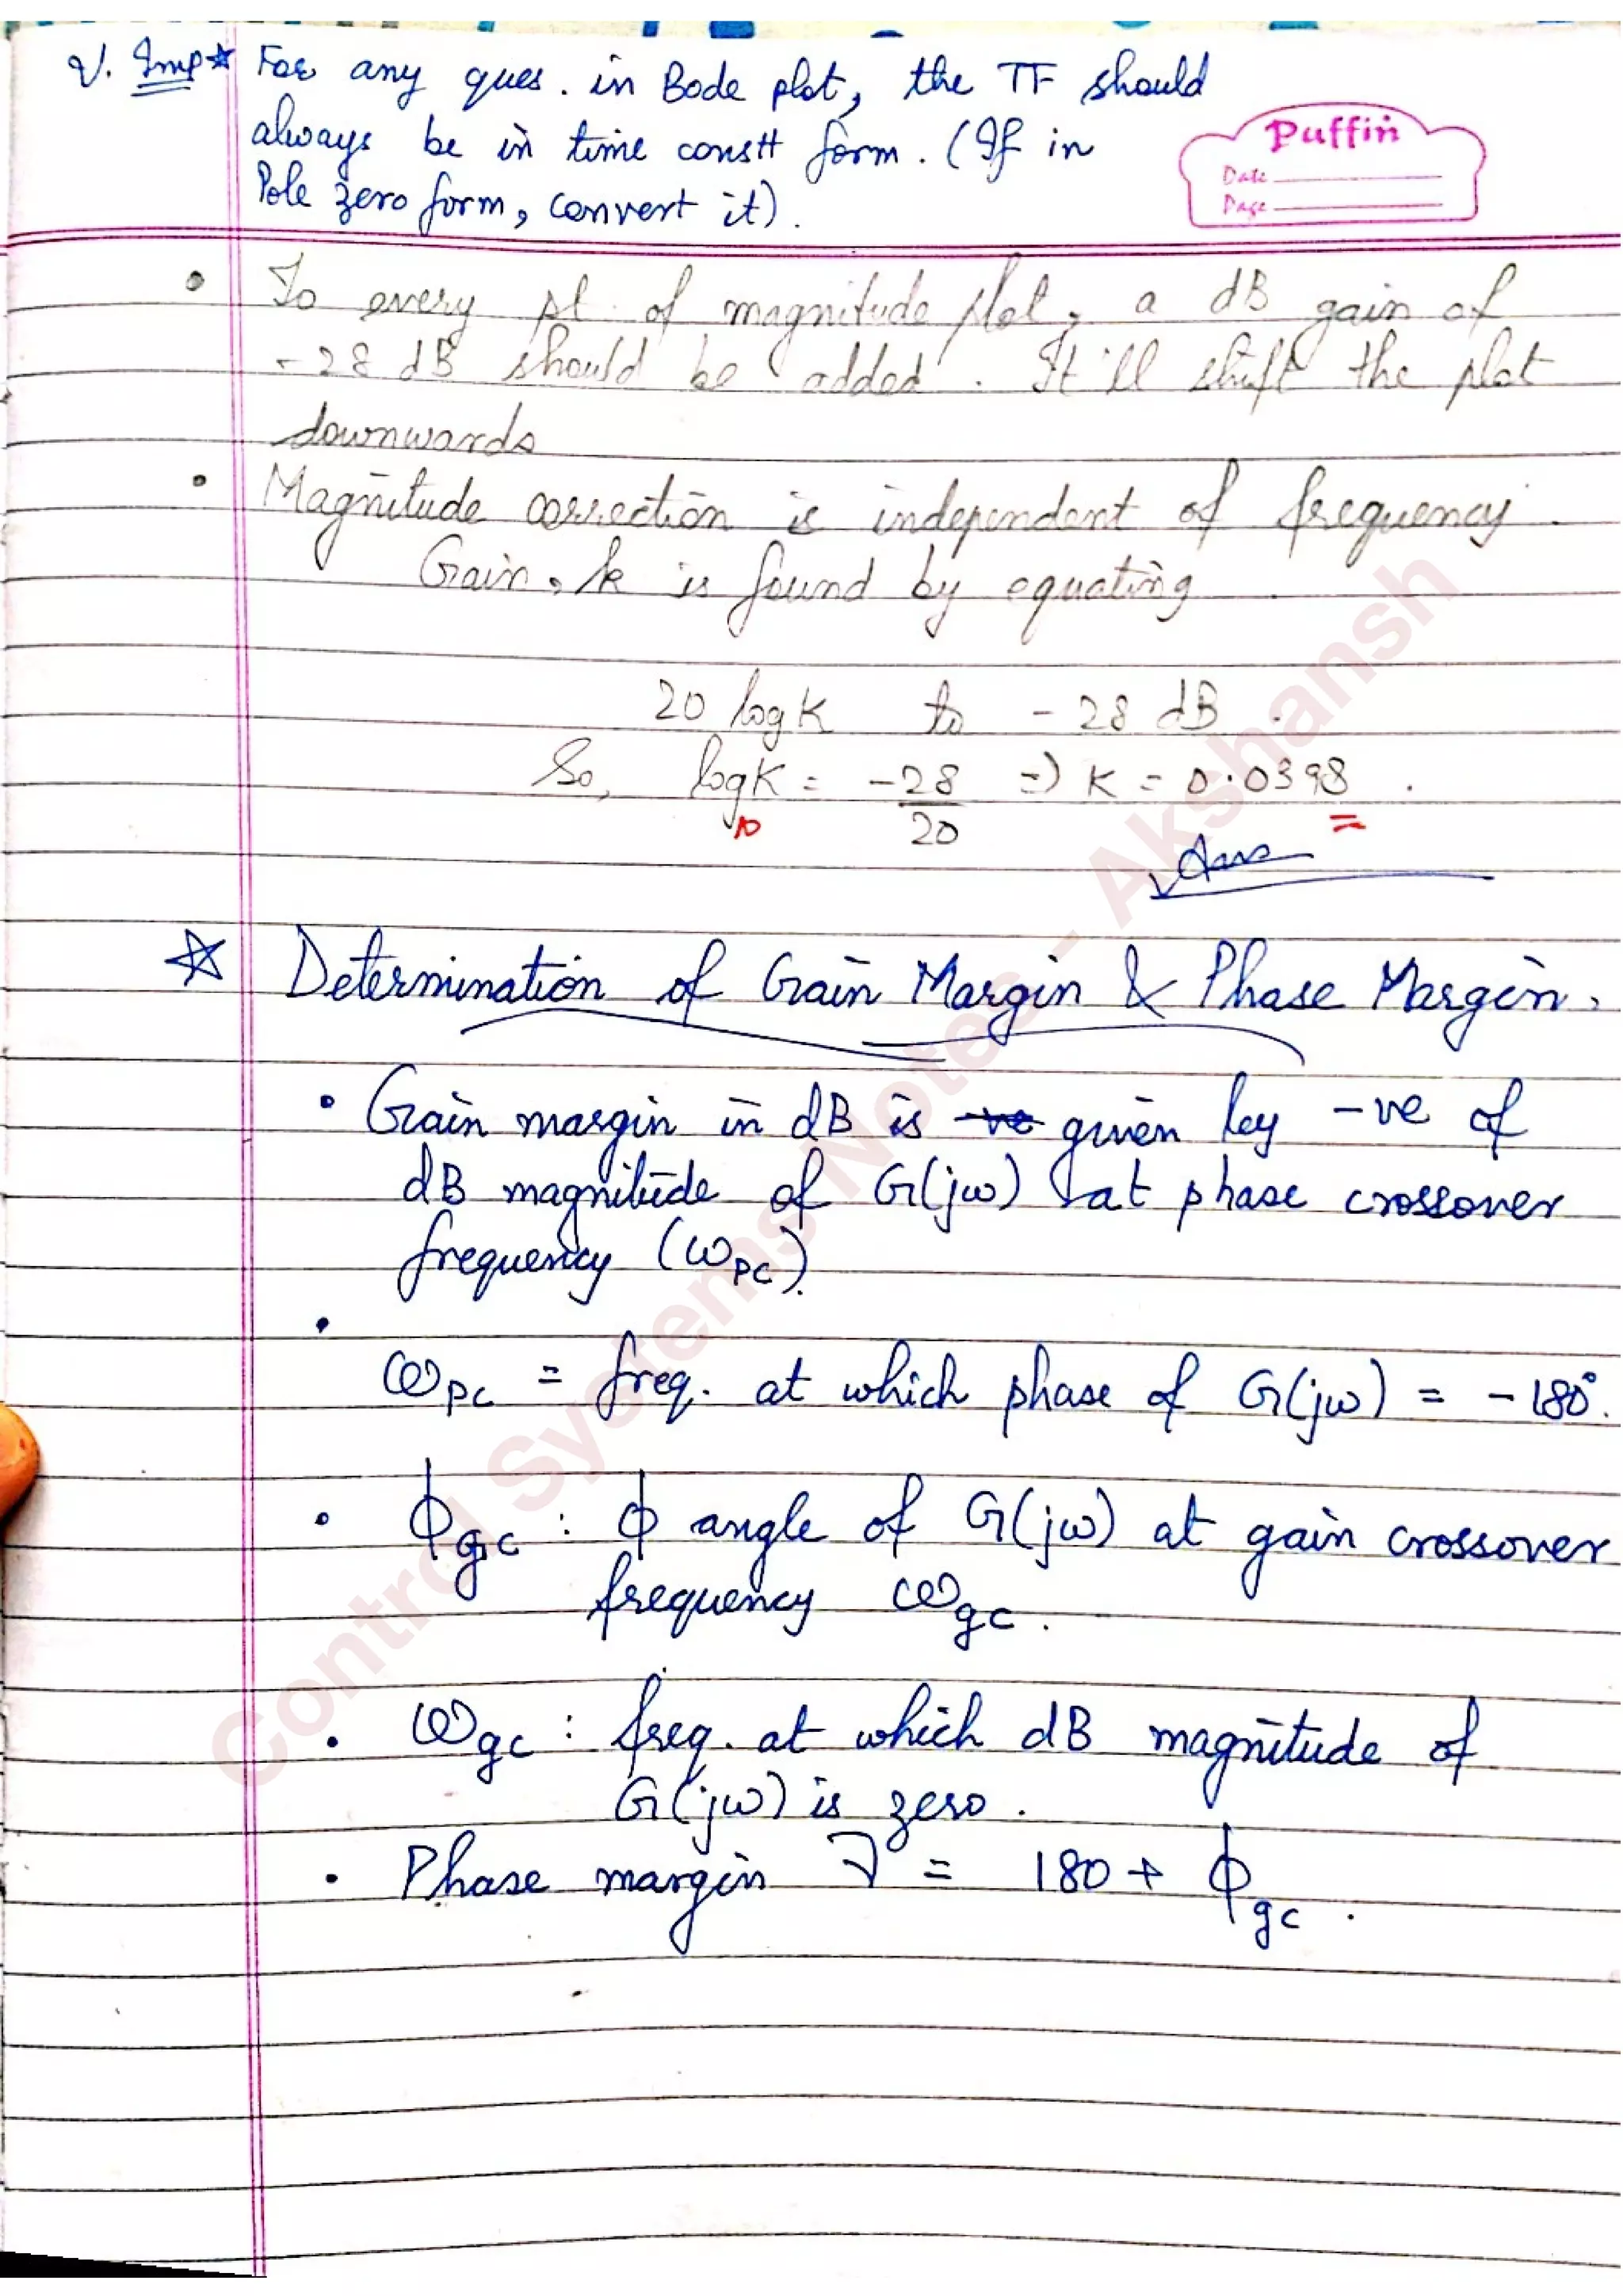 V. Imp ☆ For any ques. in Bode plot, the TF should
always be in time constt form. (If in
Pole zero form, convert it).
Puffin
Date
Page
• To every pt. of magnitude plot, a dB gain of
-28 dB should be added. It'll shift the plot
downwards
• Magnitude correction is independent of frequency.
Gain, k is found by equating
20 log K to - 28 dB.
So, log10 K = -28/20 => K = 0.0398.
Ans
☆ Determination of Gain Margin & Phase Margin.
• Gain margin in dB is given by -ve of
dB magnitude of G(jω) at phase crossover
frequency (ωPC).
•
ωPC = freq. at which phase of G(jω) = - 180°.
• ϕgc : ϕ angle of G(jω) at gain crossover
frequency ωgc.
• ωgc : freq. at which dB magnitude of
G(jω) is zero.
• Phase margin = 180 + ϕgc.
Control Systems Notes - Akshansh